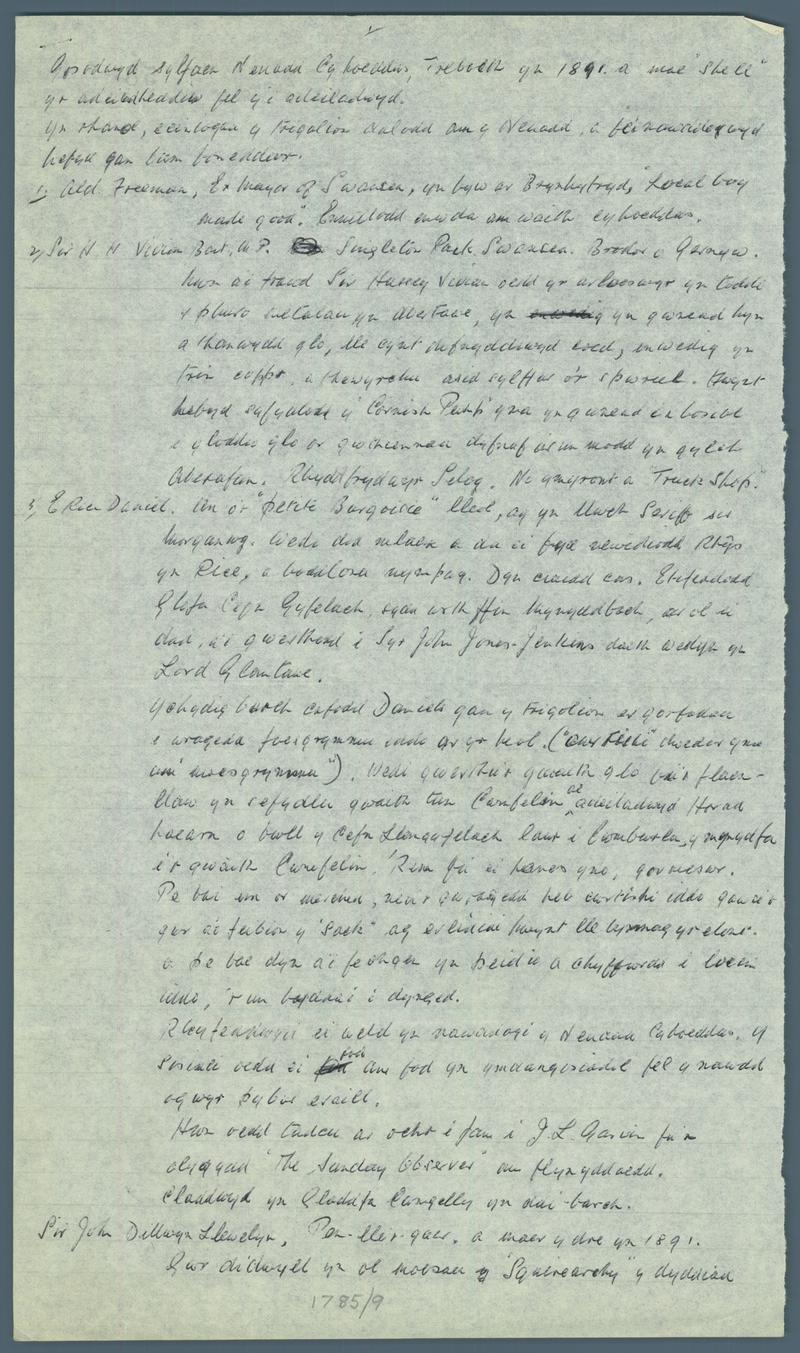 Gosodwyd sylfaen Neuadd Cyhoeddus, Treboeth yn 1891. a mae "Shell"
yr adeiladwyd.
Yn rhanol, ceiniogau y trigolion dalodd am y Neuadd, a
hefyd gan bum boneddwr.
1, Ald. Freeman, Ex Mayor of Swansea, yn byw ar Brynhyfryd, "Local boy
made good". Enillodd enwda am waith cyhoeddus.
2, Sir H. H. Vivian Bart, M.P. Singleton Park Swansea. Brodor o Gernyw.
hwn a'i frawd Sir Hussey Vivian oedd yr arloeswyr yn toddi
a phuro metalau yn Abertawe, yn yn gwneud hyn
a thanwydd glo, lle cynt defnyddiwyd coed, enwedig yn
trin coppr, a thewyrchu asid sylffur o'r sbwriel. Hwynt
hefyd sefydlodd y 'Cornish Pump' yma yn gwneud yn bosibl
i gloddio glo or gwithiennau dyfnaf a'r un modd yn gylch
Aberafan. Rhyddfrydwyr Selog. Ni ymyront a "Truck Shop".
3, E Rice Daniel. Un o'r "petite Bourgoisie" lleol, ag yn Uwch Seriff sir
Morganwg. Wedi dod ymlaen a da ei fyd newidiodd Rhys
yn Rice, a boddloni nympag. Dyn craidd cas. Etifeddodd
Glofa Cefn Gyfelach, rwan wrth ffin Mynyddbach, ar ol ei
dad, a'i gwerthodd i Syr John Jones-Jenkins daeth wedyn yn
Lord Glantawe.
Ychydig barch cafodd Daniels gan y trigolion er gorfodau
i wragedd foesgrymmu iddo ar yr heol. ("
"). Wedi gwerthu'r gwaith glo bu'r flaen-
llaw yn sefydlu gwaith tun Cwmfelin, adeiladwyd ffordd
haearn o bwll y Cefn Llangyfelach lawr i Cwmbwrla, y mynydfa
i'r gwaith Cwmfelin. 'Run fu ei hanes yno, gormeswr.
Pe bai un or merched, neu'r gwragedd heb curtshi iddo
gwr a'i feibion y "sack" ag erlidiai hwynt lle bynnag yr elont.
a pe bae dyn a'i fechgyn yn peidio a chyffwrdd i
iddo, 'r un bydda'i i dynged.
Rhyfeddwyd ei weld yn nawddogi y Neuadd Cyhoeddus. Y
oedd ei fod am fod yn ymddangosiadol fel y nawdd
ogwyr pybur eraill.
Hwn oedd tadcu ar ochr i fam i J. L. Garvin fu'n
olygydd "The Sunday Observer" am flynyddoedd.
Claddwyd yn Gladdfa Cwmgelly yn ddi-barch.
Sir John Dillwyn Llewelyn, Pen-ller-gaer. a maer y dre yn 1891.
Gwr didwyll yn ol moesau y "Squirearchy" y dyddiau
1785/9